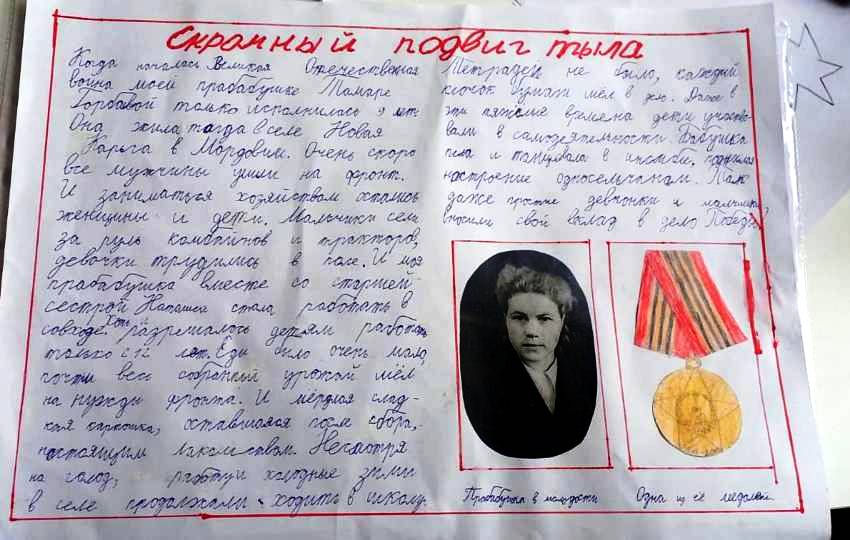 Скромный подвиг тыла
Когда началась Великая Отечественная
война моей прабабушке Тамаре
Горбавой только исполнилось 9 лет
Она жила тогда в селе Новая
Карьга в Мордовии. Очень скоро
все мужчины ушли на фронт.
И заниматься хозяйством остались
женщины и дети. Мальчики сели
за руль комбайнов и тракторов,
девочки трудились в поле. И моя
прабабушка вместе со старшей
сестрой Наташей стала работать в
совхозе разрешалось детям работать
только с 12 лет. Еды было очень мало,
почти весь собранный урожай шёл
на нужды фронта. И мёрзлая слад-
кая картошка, оставшаяся после сбора,
настоящим лакомством. Несмотря
на голод, работу и холодные зимы
в селе продолжали ходить в школу.
Тетрадей не было, каждый
клочок бумаги шёл в дело. Даже в
эти тяжёлые времена дети участво-
вали в самодеятельности. Бабушка
пела и танцевала в, поднимая
настроение односельчанам. Так
даже простые девчонки и мальчишки
вносили свой вклад в дело Победы
Прабабушка в молодости
Одна из её медалей